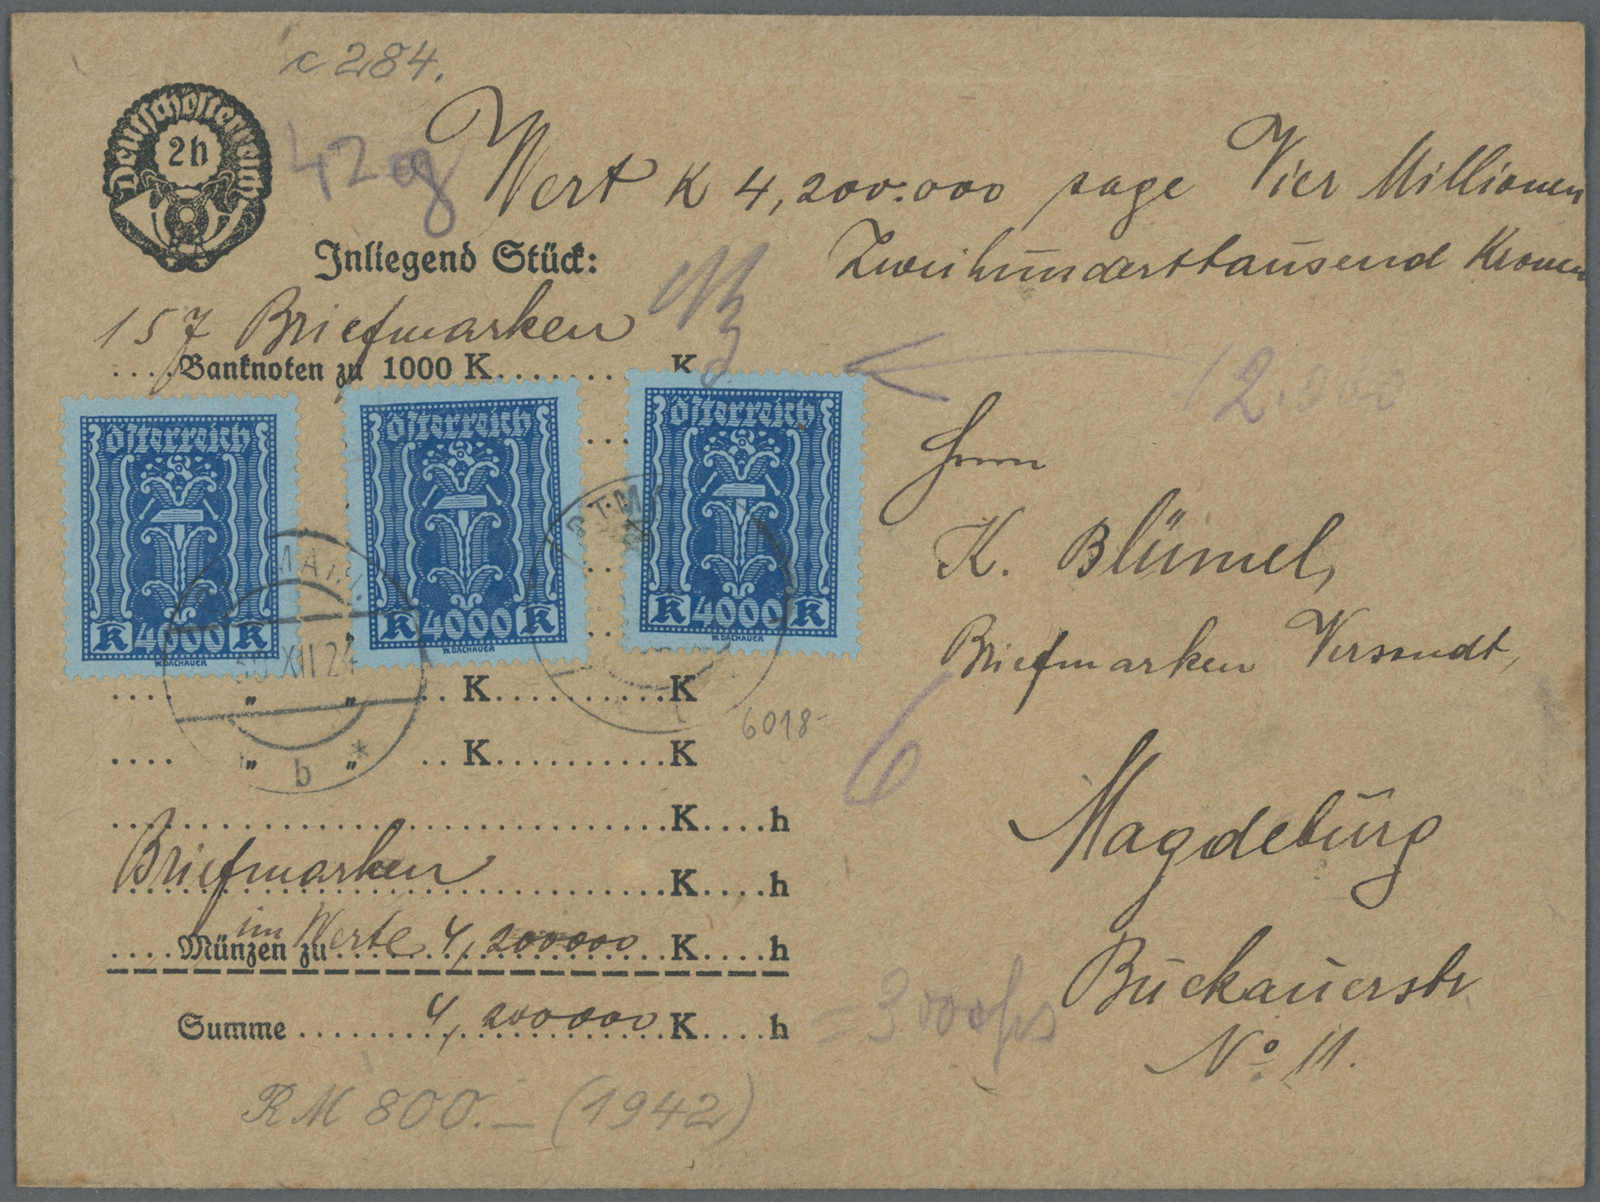 c 284.
Deutschösterreich
2h
42 g
Wert K 4,200.000 sage Vier Millionen
Zweihunderttausend Kronen
Inliegend Stück:
157 Briefmarken
....Banknoten zu 1000 K.......... K
12.000
Österreich
K 4000 K
W.DACHAUER
Österreich
K 4000 K
W.DACHAUER
Österreich
K 4000 K
W.DACHAUER
XII 24
b *
Herrn
K. Blümel,
Briefmarken Versandt,
Magdeburg
Buckauerstr
No 11.
.... „ „ .. K..........K
6018-
6
.... „ „ .. K..........K
..............................K....h
Briefmarken..............................K....h
....Münzen zu im Werte 4,200000 K....h
Summe ....... 4,200000 K....h
= 3000
RM 800.— (1942)